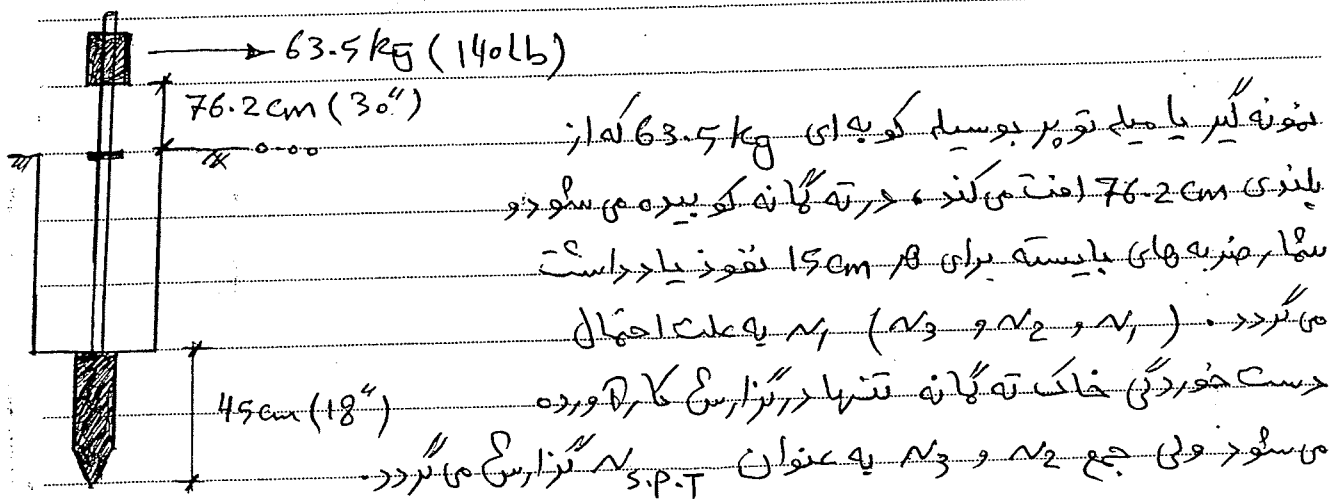 63.5 kg (140 lb)
76.2 cm (30")
نمونه گیر یا میله توپر بوسیله کوبه ای 63.5 kg که از
بلندی 76.2 cm افت می کند، در ته گمانه کوبیده می شود و
شمار ضربه های بایسته برای هر 15 cm نفوذ یادداشت
می گردد. (N1 و N2 و N3) N1 به علت احتمال
دست خوردگی خاک ته گمانه تنها در گزارش کار آورده
45 cm (18")
می شود ولی جمع N2 و N3 به عنوان N S.P.T گزارش می گردد.